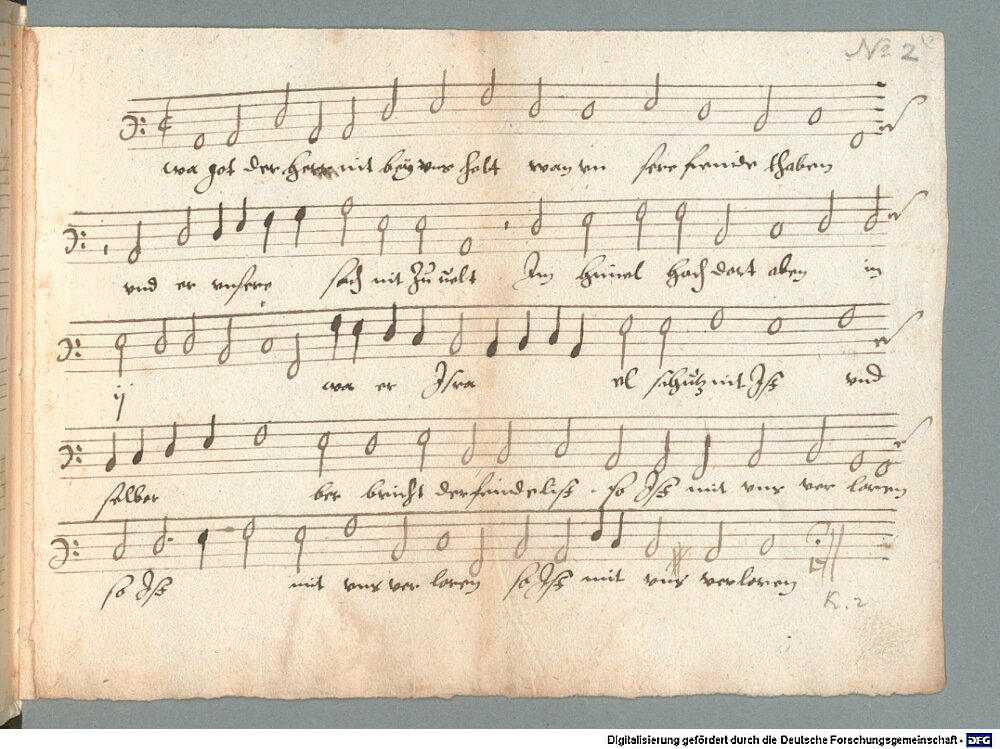 No 2
wa got der herr nit bey uns helt wan un sere feinde thoben
und er unsere sach nit zu velt Im himel hoch dort oben in
ij wa er Isra el schutz nit Ist und
selber ber bricht der feinde list . so Ist mit uns ver loren
so Ist mit uns ver loren so Ist mit uns verloren
K. 2
Digitalisierung gefördert durch die Deutsche Forschungsgemeinschaft - DFG